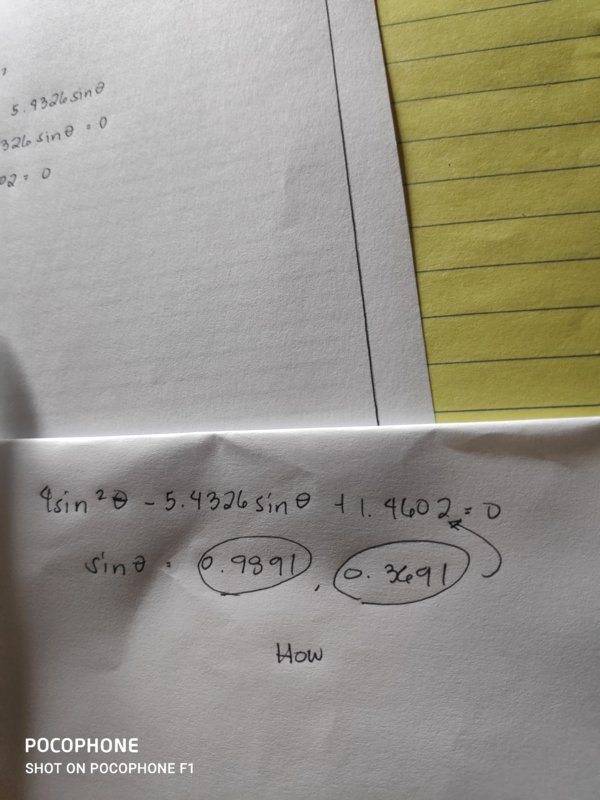 5.4326 sinθ
326 sinθ = 0
02 = 0
4sin²θ - 5.4326 sinθ + 1.4602 = 0
sinθ = 0.9891, 0.3691
How
POCOPHONE
SHOT ON POCOPHONE F1